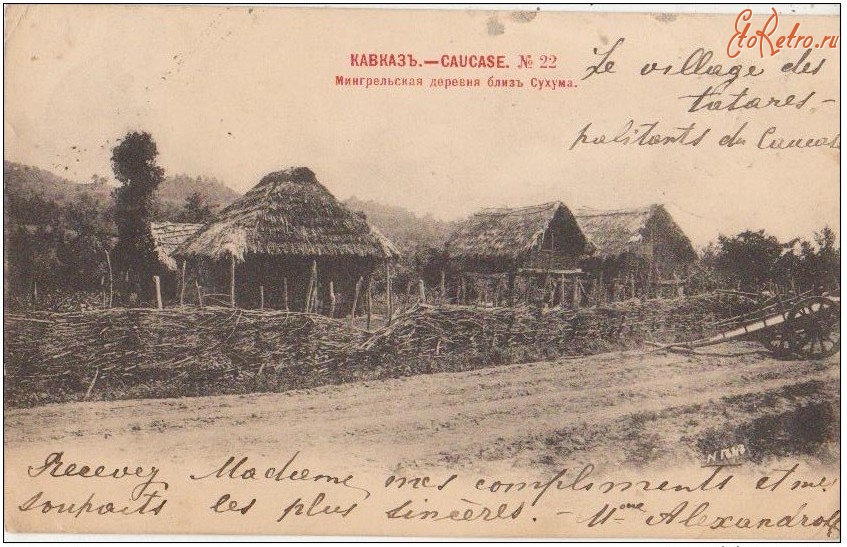 EtoRetro.ru
КАВКАЗЪ.—CAUCASE. № 22
Мингрельская деревня близъ Сухума.
Le village des
tatares-
politants du Caucase
Recevez Madame, mes compliments et mes
souhaits les plus sincères. - Mme Alexandroff